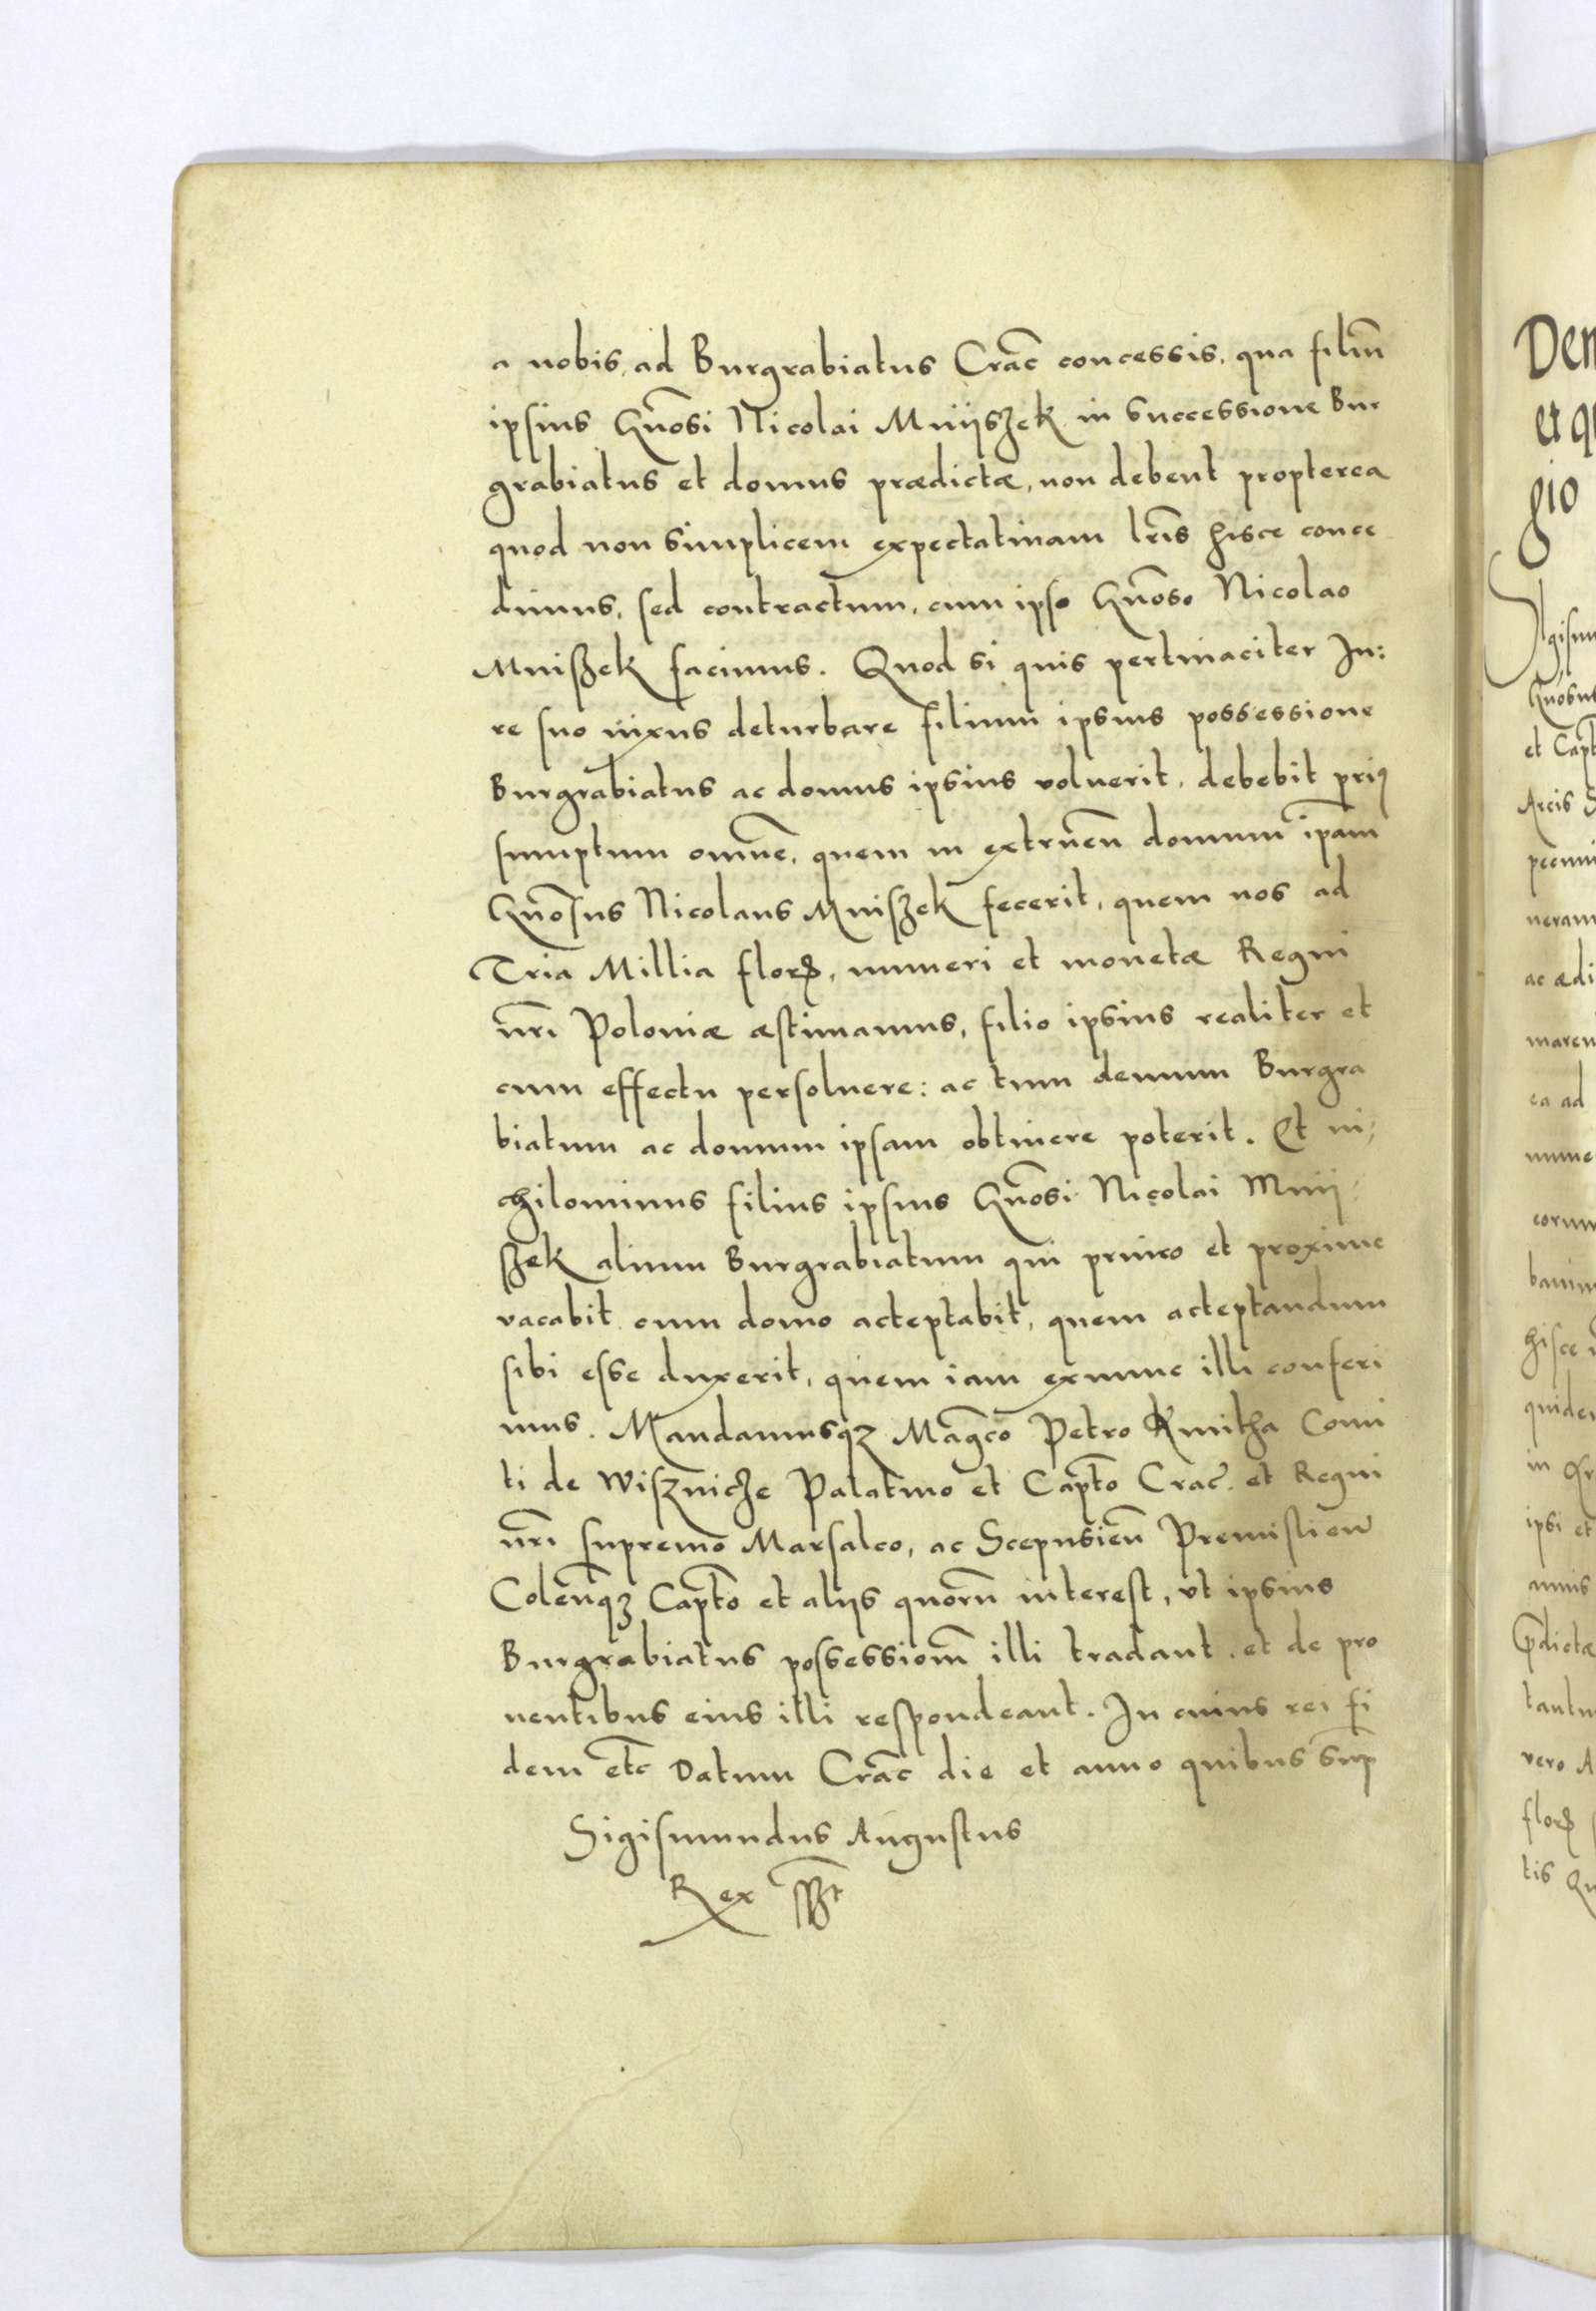 a nobis, ad Burgrabiatus Crac̃ concessis, qua filiũ
ipsius Gñosi Nicolai Mniiszek in successione Bur
grabiatus et domus prædictæ, non debent propterea
quod non simplicem expectatiuam lr̃is hisce conce
dimus, sed contractum, cum ipso Gñoso Nicolao
Mniszek facimus. Quod si quis pertinaciter Iu:
re suo nixus deturbare filium ipsius possessione
Burgrabiatus ac domus ipsius voluerit, debebit priꝰ
sumptum omnẽ, quem in extrueñ domum ip̃am
Gñosus Nicolaus Mniszek fecerit, quem nos ad
Tria Millia floꝝ, numeri et monetæ Regni
nr̃i Poloniæ æstimamus, filio ipsius realiter et
cum effectu persoluere: ac tum demum Burgra
biatum ac domum ipsam obtinere poterit. Et ni,
chilominus filius ipsius Gñosi Nicolai Mnii
szek alium Burgrabiatum qui primo et proxime
vacabit cum domo acceptabit, quem acceptandum
sibi esse duxerit, quem iam exnunc illi conferi
mus. Mandamusqꝫ Mag̃co Petro Kmitha Comi
ti de Wisznicze Palatino et Capt̃o Crac̃. et Regni
nr̃i supremo Marsalco, ac Scepusieñ Premislieñ
Coleñqꝫ Capt̃o et aliis quorũ interest, vt ipsius
Burgrabiatus possessionẽ illi tradant, et de pro
uentibus eius illi respondeant. In cuius rei fi
dem etc̃ Datum Crac̃ die et anno quibus sup̃
Sigismundus Augustus
Rex sszt
Dem
et q
gio
gism
Gñosu
et Capt
Arcis S
pecuni
neram
ac ædi
maren
ea ad
nume
eorum
banim
hisce
quidem
in
ipsi et
annis
P̃dictæ
tantu
vero A
floꝝ
tis